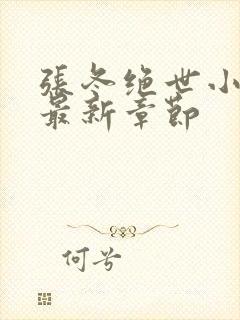 張冬绝世小
最新章節
何兮